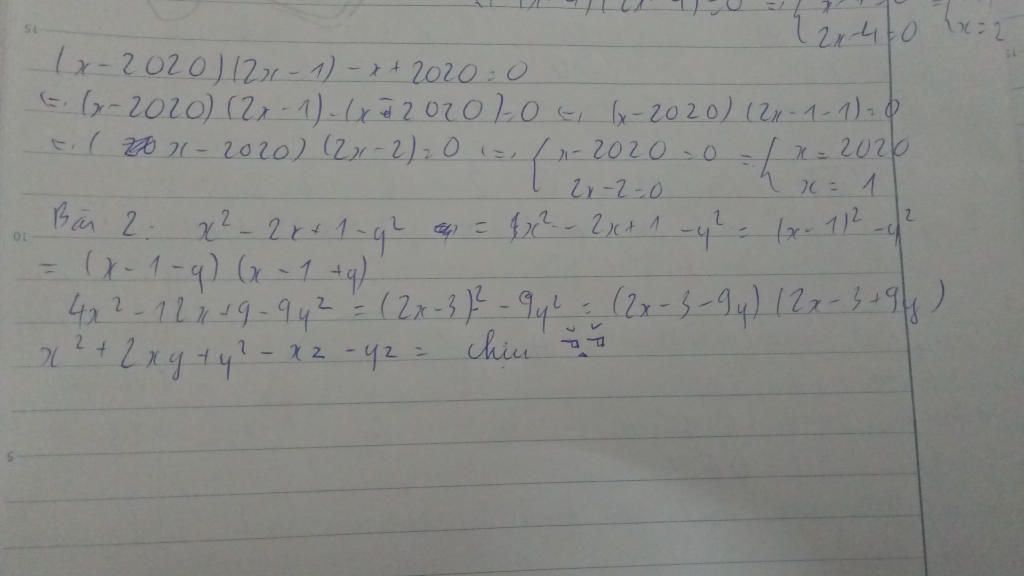 2x-4=0 x=2
(x-2020)(2x-1)-x+2020=0
(x-2020)(2x-1)-(x-2020)=0 (x-2020)(2x-1-1)=0
(x-2020)(2x-2)=0 { x-2020=0 = { x=2020
2x-2=0 x=1
Bài 2. x²-2x+1-y² = x²-2x+1-y² = (x-1)²-y²
= (x-1-y)(x-1+y)
4x²-12x+9-9y² = (2x-3)²-9y² = (2x-3-9y)(2x-3+9y)
x²+2xy+y²-xz-yz = chịu